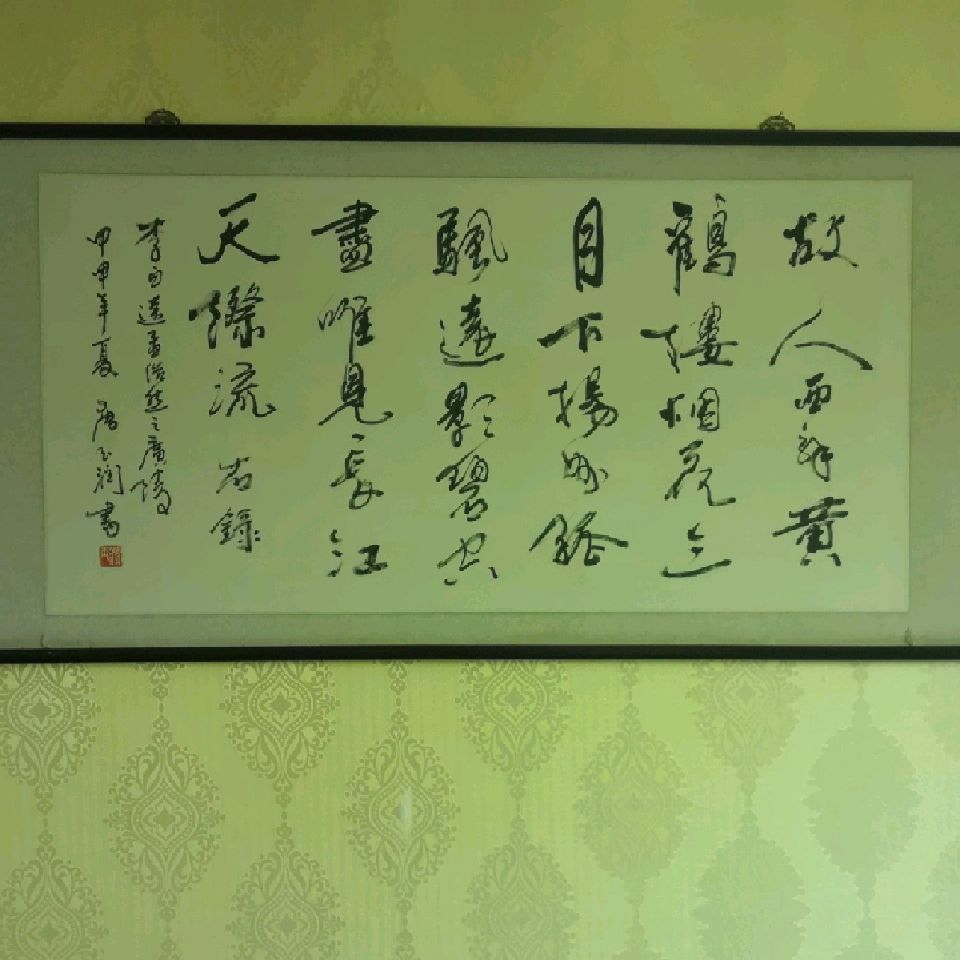 故人西辞黄
鶴樓烟花三
月下揚州孤
颿遠影碧空
盡唯見長江
天際流 右錄
李白送孟浩然之廣陵
甲申年夏 唐玉潤書